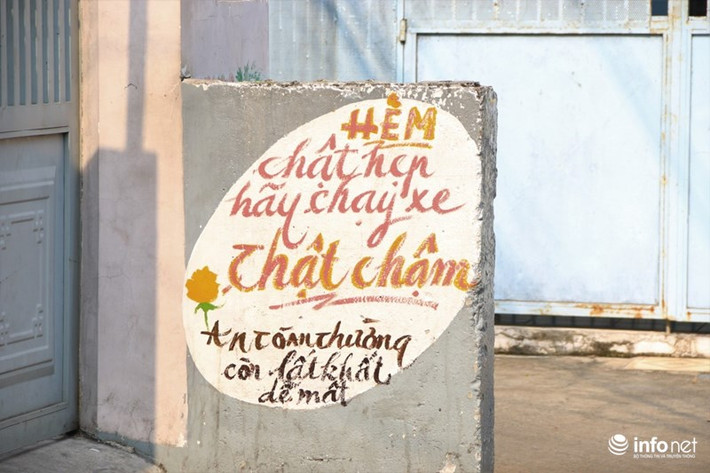 HẺM
chật hẹp
hãy chạy xe
Thật chậm
AN TOÀN THƯỜNG
còn lất khất
dễ mất
infonet
BỘ THÔNG TIN VÀ TRUYỀN THÔNG